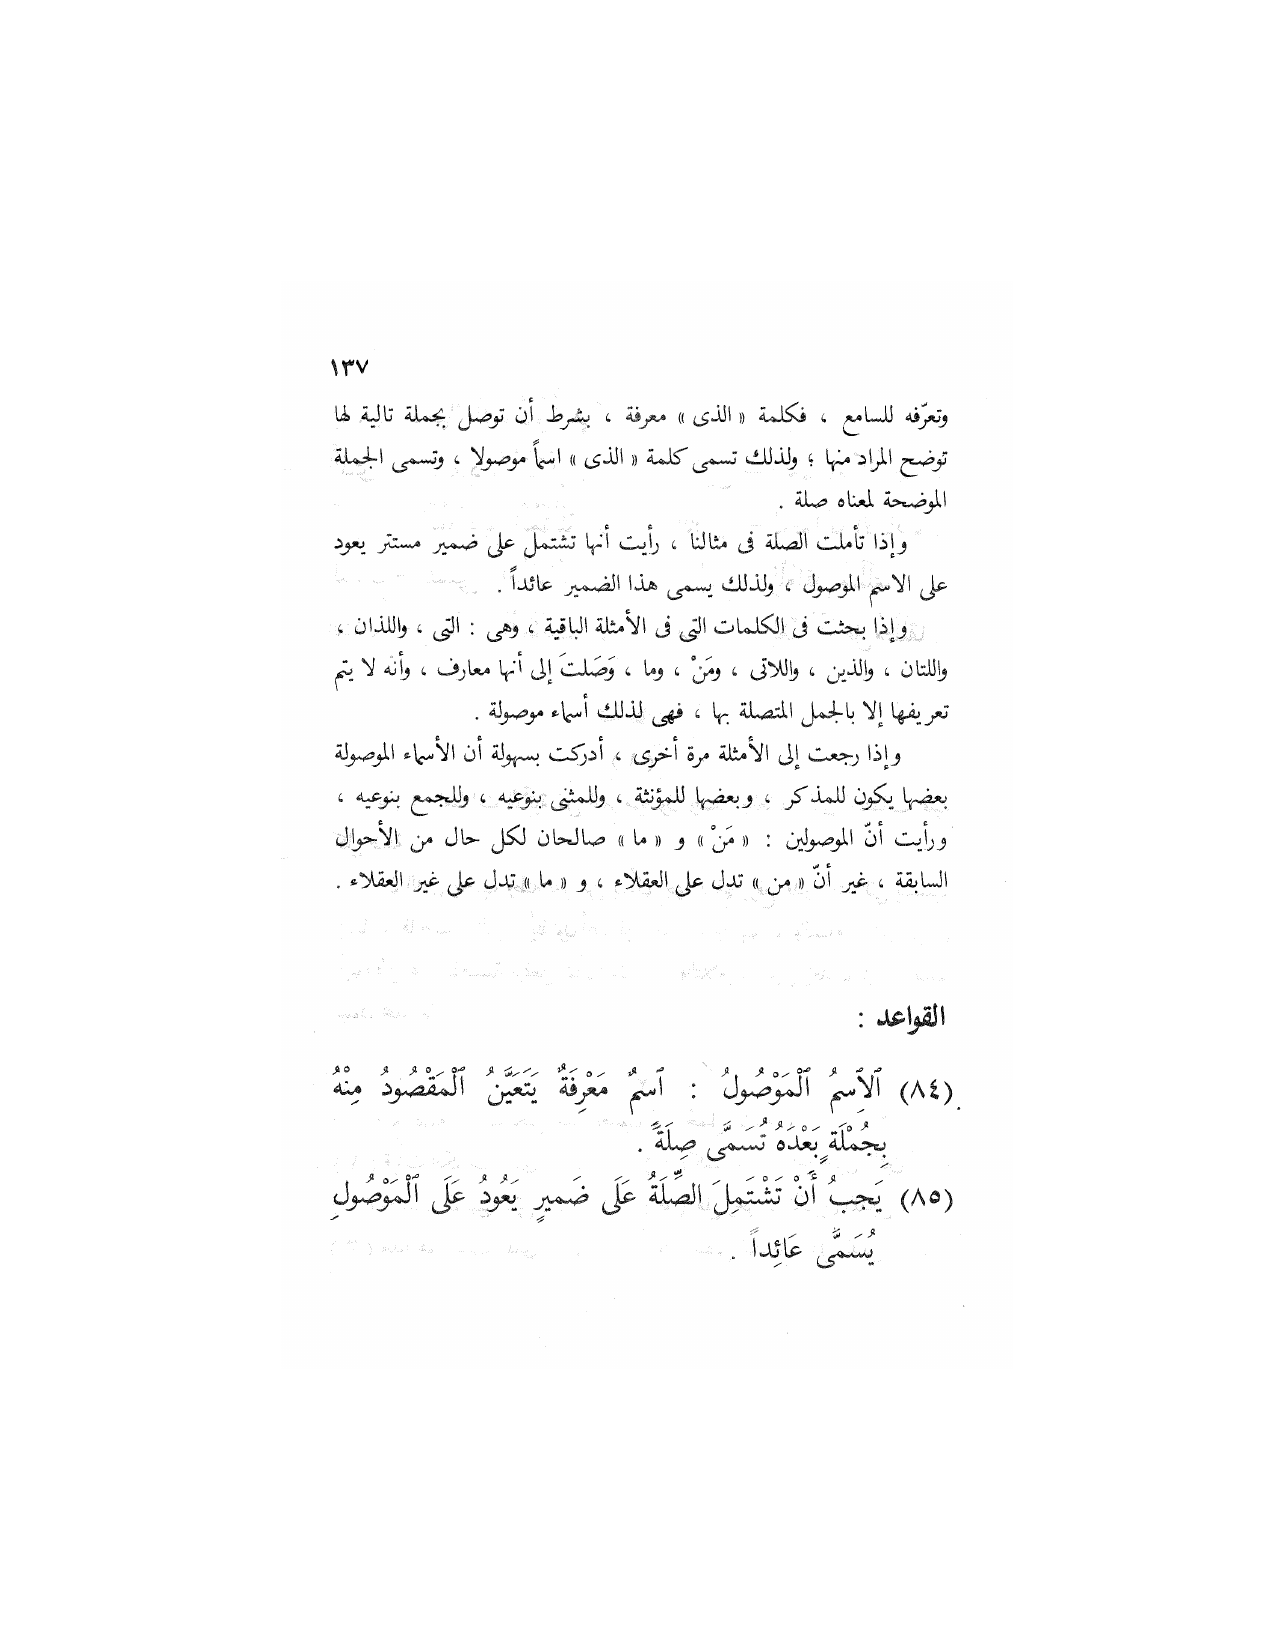 ١٣٧
وتعرّفه للسامع ، فكلمة « الذى » معرفة ، بشرط أن توصل بجملة تالية لها
توضح المراد منها ؛ ولذلك تسمى كلمة « الذى » اسماً موصولا ، وتسمى الجملة
الموضحة لمعناه صلة .
وإذا تأملت الصلة فى مثالنا ، رأيت أنها تشتمل على ضمير مستتر يعود
على الاسم الموصول ، ولذلك يسمى هذا الضمير عائداً .
وإذا بحثت فى الكلمات التى فى الأمثلة الباقية ، وهى : التى ، واللذان ،
واللتان ، والذين ، واللاتى ، ومَنْ ، وما ، وَصَلتَ إلى أنها معارف ، وأنه لا يتم
تعريفها إلا بالجمل المتصلة بها ، فهى لذلك أسماء موصولة .
وإذا رجعت إلى الأمثلة مرة أخرى ، أدركت بسهولة أن الأسماء الموصولة
بعضها يكون للمذكر ، وبعضها للمؤنثة ، وللمثنى بنوعيه ، وللجمع بنوعيه ،
ورأيت أنّ الموصولين : « مَنْ » و « ما » صالحان لكل حال من الأحوال
السابقة ، غير أنّ « من » تدل على العقلاء ، و « ما » تدل على غير العقلاء .
القواعد :
(٨٤) ٱلاِٱسمُ ٱلْمَوْصُولُ : ٱسمٌ مَعْرِفَةٌ يَتَعَيَّنُ ٱلْمَقْصُودُ مِنْهُ
بِجُمْلَةٍ بَعْدَهُ تُسَمَّى صِلَةً .
(٨٥) يَجبُ أَنْ تَشْتَمِلَ الصِّلَةُ عَلَى ضَميرٍ يَعُودُ عَلَى ٱلْمَوْصُولِ
يُسَمَّى عَائِداً .